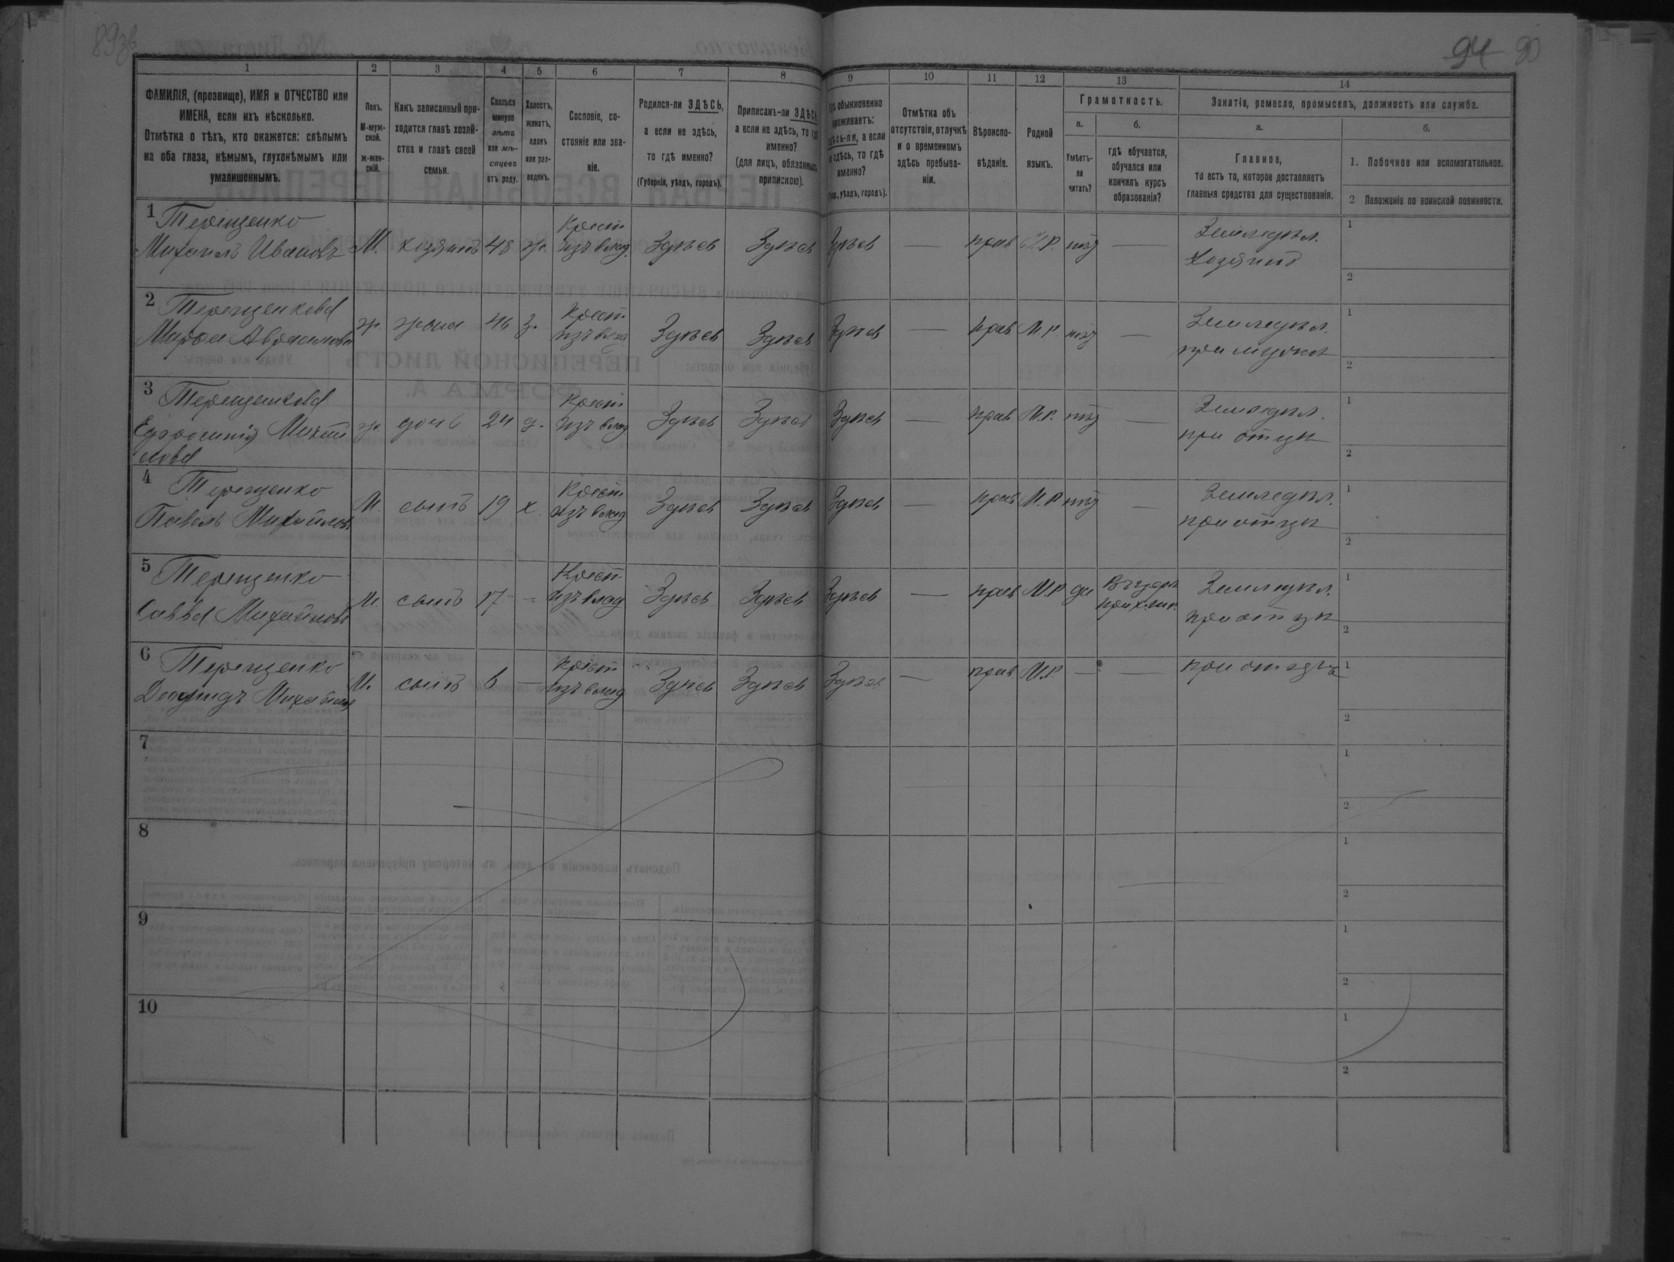 89об
94 90
1
2
3
4
5
6
7
8
9
10
11
12
13
14
ФАМИЛІЯ, (прозвище), ИМЯ и ОТЧЕСТВО или
ИМЕНА, если ихъ нѣсколько.
Отмѣтка о тѣхъ, кто окажется: слѣпымъ
на оба глаза, нѣмымъ, глухонѣмымъ или
умалишеннымъ.
Полъ.
М-муж-
ской.
ж-жен-
скій.
Какъ записанный при-
ходится главѣ хозяй-
ства и главѣ своей
семьи.
Сколько
минуло
лѣтъ
или мѣ-
сяцевъ
отъ роду.
Холостъ,
женатъ,
вдовъ
или раз-
веденъ.
Сословіе, со-
стояніе или зва-
ніе.
Родился-ли ЗДѢСЬ,
а если не здѣсь,
то гдѣ именно?
(Губернія, уѣздъ, городъ).
Приписанъ-ли ЗДѢСЬ,
а если не здѣсь, то гдѣ
именно?
(для лицъ, обязанныхъ
припискою).
обыкновенно
проживаетъ:
здѣсь-ли, а если
не здѣсь, то гдѣ
именно?
уѣздъ, городъ).
Отмѣтка объ
отсутствіи, отлучкѣ
и о временномъ
здѣсь пребыва-
ніи.
Вѣроиспо-
вѣданіе.
Родной
языкъ.
Грамотность.
а.
б.
Умѣетъ-
ли
читать?
гдѣ обучается,
обучался или
кончилъ курсъ
образованія?
Занятіе, ремесло, промыселъ, должность или служба.
а.
б.
Главное,
то есть то, которое доставляетъ
главныя средства для существованія.
1. Побочное или вспомогательное.
2 Положеніе по воинской повинности.
1 Терещенко
Михаилъ Ивановъ М. хозяинъ 48 ж. Крест. изъ влад. Здѣсь Здѣсь Здѣсь — прав М.Р. нѣт — Земледѣл. хозяинъ
1
2
2 Терещенкова
Марфа ж жена 46 з. Крест. изъ влад Здѣсь Здѣсь Здѣсь — прав М.Р. нѣт — Земледѣл. при мужѣ
1
2
3 Терещенкова
Ефросинія Михай
лова ж дочь 24 д. Крест изъ влад Здѣсь Здѣсь Здѣсь — прав М.Р. нѣт Земледѣл. при отцѣ
1
2
4 Терещенко
Павелъ Михайлов. М. сынъ 19 х. Крест изъ влад Здѣсь Здѣсь Здѣсь — прав М.Р. нѣт — Земледѣл. при отцѣ
1
2
5 Терещенко
Савва Михайловъ М сынъ 17 - - Крест изъ влад Здѣсь Здѣсь Здѣсь — прав М.Р. да Земледѣл. при отцѣ
1
2
6 Терещенко
М. сынъ 6 — Крест изъ влад Здѣсь Здѣсь Здѣсь — прав М.Р. — — при отцѣ
1
2
7
1
2
8
1
2
9
1
2
10
1
2